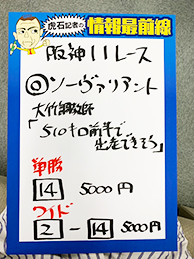 虎石記者の
情報最前線
阪神11レース
◎ソーヴァリアント
大竹調教師
「510キロ前半で
出走できそう」
単勝
14 5000円
ワイド
2-14 5000円